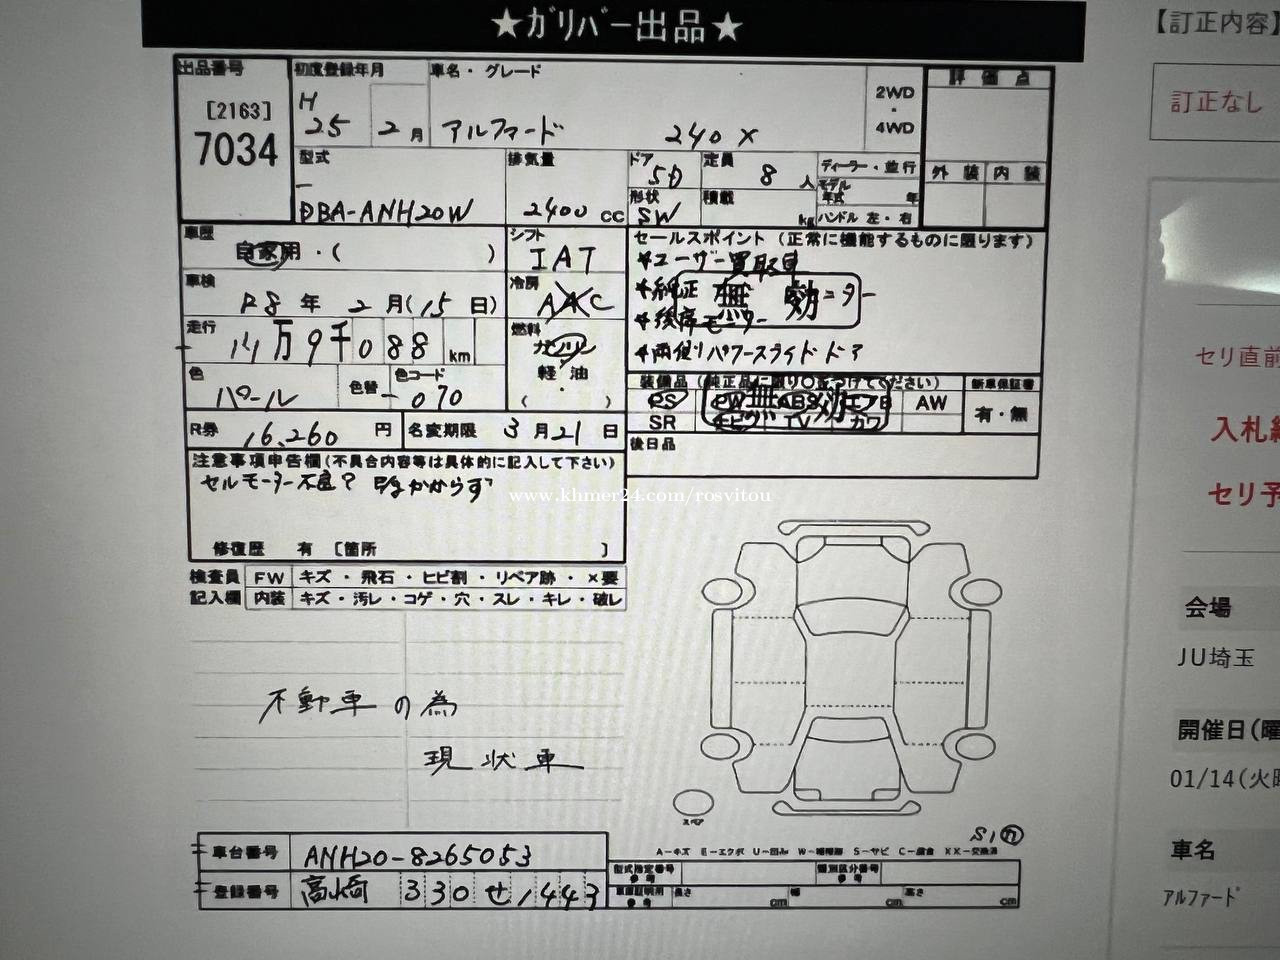 ★ガリバー出品★
出品番号
[2163]
7034
初度登録年月
H
25 2月
車名・グレード
アルファード 240X
2WD
・
4WD
評価点
外装 内装
型式
DBA-ANH20W
排気量
2400 cc
ドア
5D
定員
8人
形状
SW
積載
kg
ディーラー・並行
モデル
年式 年
ハンドル 左・右
車歴
自家用・( )
シフト
IAT
車検
R8年 2月(15日)
冷房
AAC
走行
11万9千088km
燃料
ガソリン
軽・油
・
( )
色
パール
色替
色コード
070
R券
16,260円
名変期限
3月21日
セールスポイント (正常に機能するものに限ります)
*ユーザー買取車
*純正 無効 ニター
*後席モニター
*両側パワースライドドア
装備品 (純正品に限り○をつけてください)
PS PW ABS AW
SR ナビ TV カワ
無効
新車保証書
有・無
後日品
注意事項申告欄(不具合内容等は具体的に記入して下さい)
セルモーター不良? かからず
修復歴 有 [箇所 ]
検査員 FW キズ・飛石・ヒビ割・リペア跡・×要
記入欄 内装 キズ・汚レ・コゲ・穴・スレ・キレ・破レ
不動車の為
現状車
スペア
S1カ
車台番号 ANH20-8265053
登録番号 高崎 330 せ 1443
型式指定番号
参考
類別区分番号
参考
長さ cm 幅 cm 高さ cm
【訂正内容】
訂正なし
セリ直前
入札
セリ予
会場
JU埼玉
開催日(曜
01/14(火曜
車名
アルファード
www.khmer24.com/rosvitou